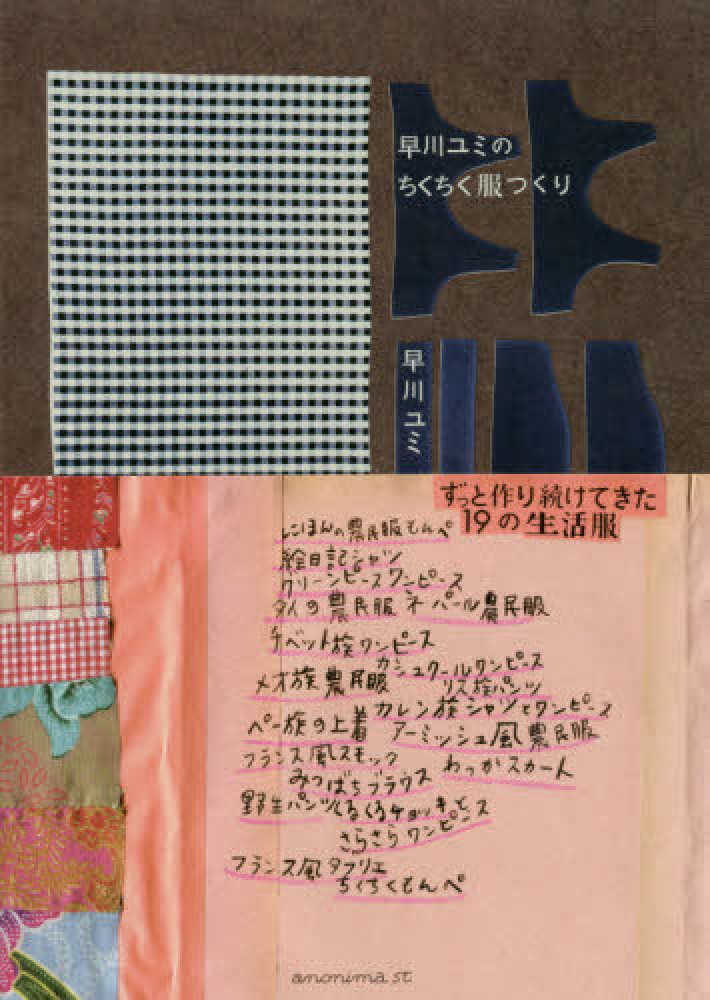 早川ユミの
ちくちく服つくり
早川ユミ
ずっと作り続けてきた
19の生活服
にほんの農民服もんぺ
絵日記シャツ
グリーンピースワンピース
タイの農民服 ネパール農民服
チベット族ワンピース
カシュクールワンピース
メオ族農民服 リス族パンツ
カレン族シャツとワンピース
ペー族の上着 アーミッシュ風農民服
フランス風スモック わっかスカート
みつばちブラウス
野生パンツ くるくるチョッキと
さらさらワンピース
フランス風タブリエ
ちくちくもんぺ
anonima st